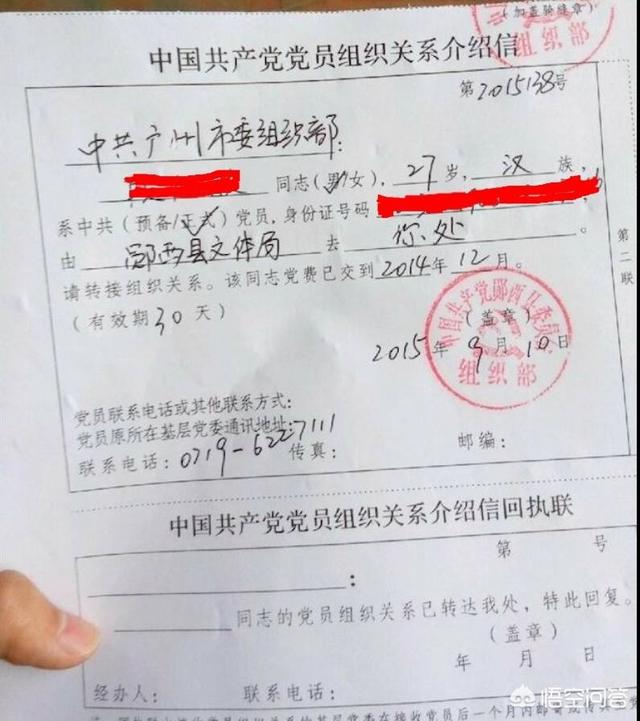 (加盖骑缝章)
组织部
中国共产党党员组织关系介绍信
第2015138号
中共广州市委组织部:
同志(男/女),27岁,汉族,
系中共(预备/正式)党员,身份证号码
由郧西县文体局去你处。
请转接组织关系。该同志党费已交到2014年12月。
(有效期30天)
(盖章)
2015年9月10日
中国共产党郧西县委员会
组织部
第二联
党员联系电话或其他联系方式:
党员原所在基层党委通讯地址:
联系电话:0719-6227111 传真: 邮编:
中国共产党党员组织关系介绍信回执联
第 号
:
同志的党员组织关系已转达我处,特此回复。
(盖章)
年 月 日
经办人: 联系电话:
悟空问答